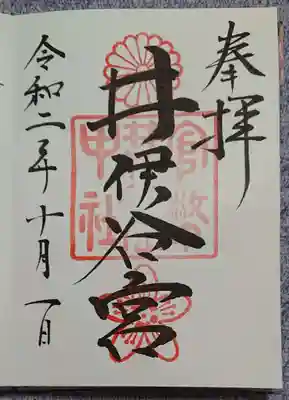 奉拝
井伊谷宮
令和二年十月一日
官幣中社